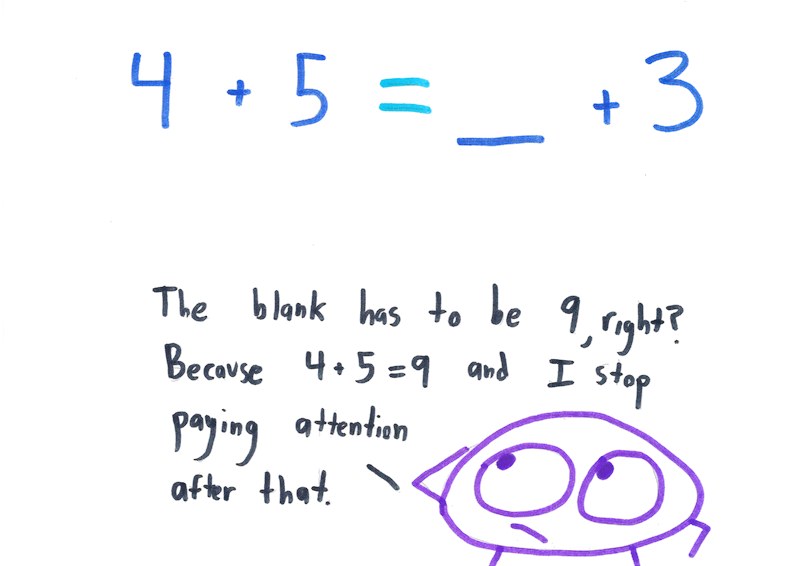 4 + 5 = __ + 3
The blank has to be 9, right?
Because 4+5=9 and I stop
paying attention
after that.